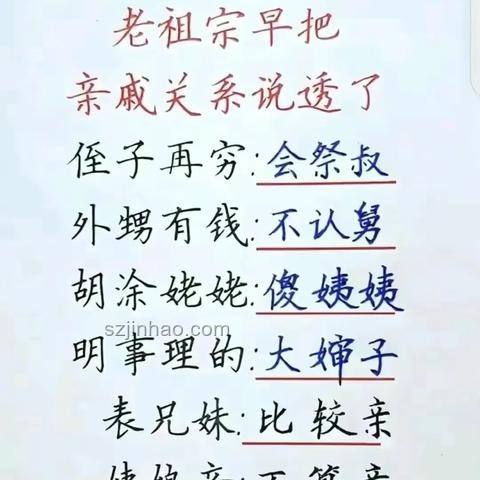 老祖宗早把
亲戚关系说透了
侄子再穷:会祭叔
外甥有钱:不认舅
胡涂姥姥:傻姨姨
szjinhao.com
明事理的:大婶子
表兄妹:比较亲